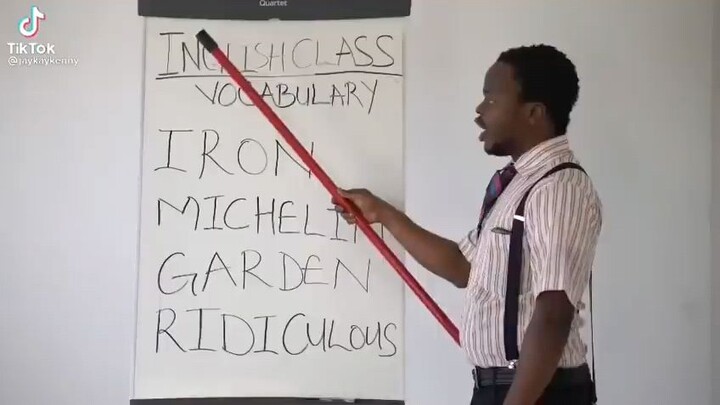 Quartet
TikTok
@jaykaykenny
INGLISH CLASS
VOCABULARY
IRON
MICHELIN
GARDEN
RIDICULOUS